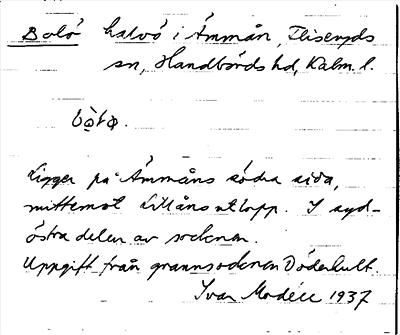 Bolö halvö i Ämmån, Fliseryds
sn, Handbörds hd, Kalm. l.
Ligger på Ämmåns södra sida,
mittemot Lillåns utlopp. I syd-
östra delen av socknen.
Uppgift från grannsocknen Döderhult.
Ivar Modéer 1937